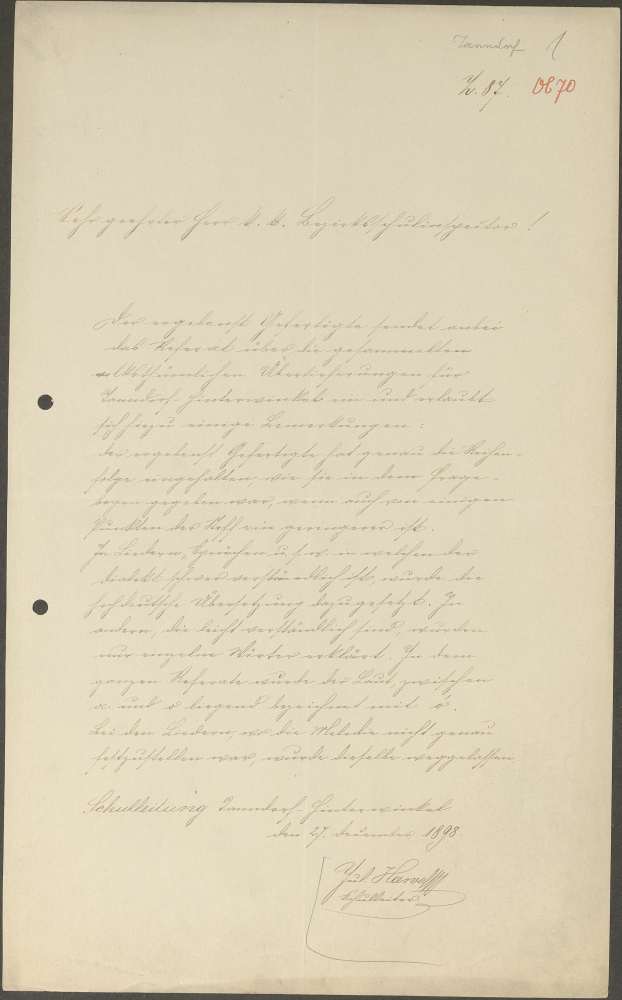 Tanndorf 1
Z. 87. Ob 70
Sehr geehrter Herr k. k. Bezirksschulinspector!
Der ergebenst Gefertigte sendet anbei
das Referat über die gesammelten
volksthümlichen Überlieferungen für
Tanndorf-Hinterwinkel ein und erlaubt
sich hiezu einige Bemerkungen:
der ergebenst Gefertigte hat genau die Reihen-
folge eingehalten wie sie in dem Frage-
bogen gegeben war, wenn auch von einigen
Punkten der Stoff ein geringerer ist.
In Liedern, Sprüchen u. s. w. in welchen der
Dialekt schwer verständlich ist, wurde die
hochdeutsche Übersetzung dazugesetzt. In
andern, die leicht verständlich sind, wurden
nur einzelne Wörter erklärt. In dem
ganzen Referate wurde der Laut zwischen
a und o liegend bezeichnet mit
bei den Liedern, wo die Melodie nicht genau
festzustellen war, wurde dieselbe weggelassen
Schulleitung Tanndorf-Hinterwinkel
den 27. Dezember 1898
Jul.
Schulleiter